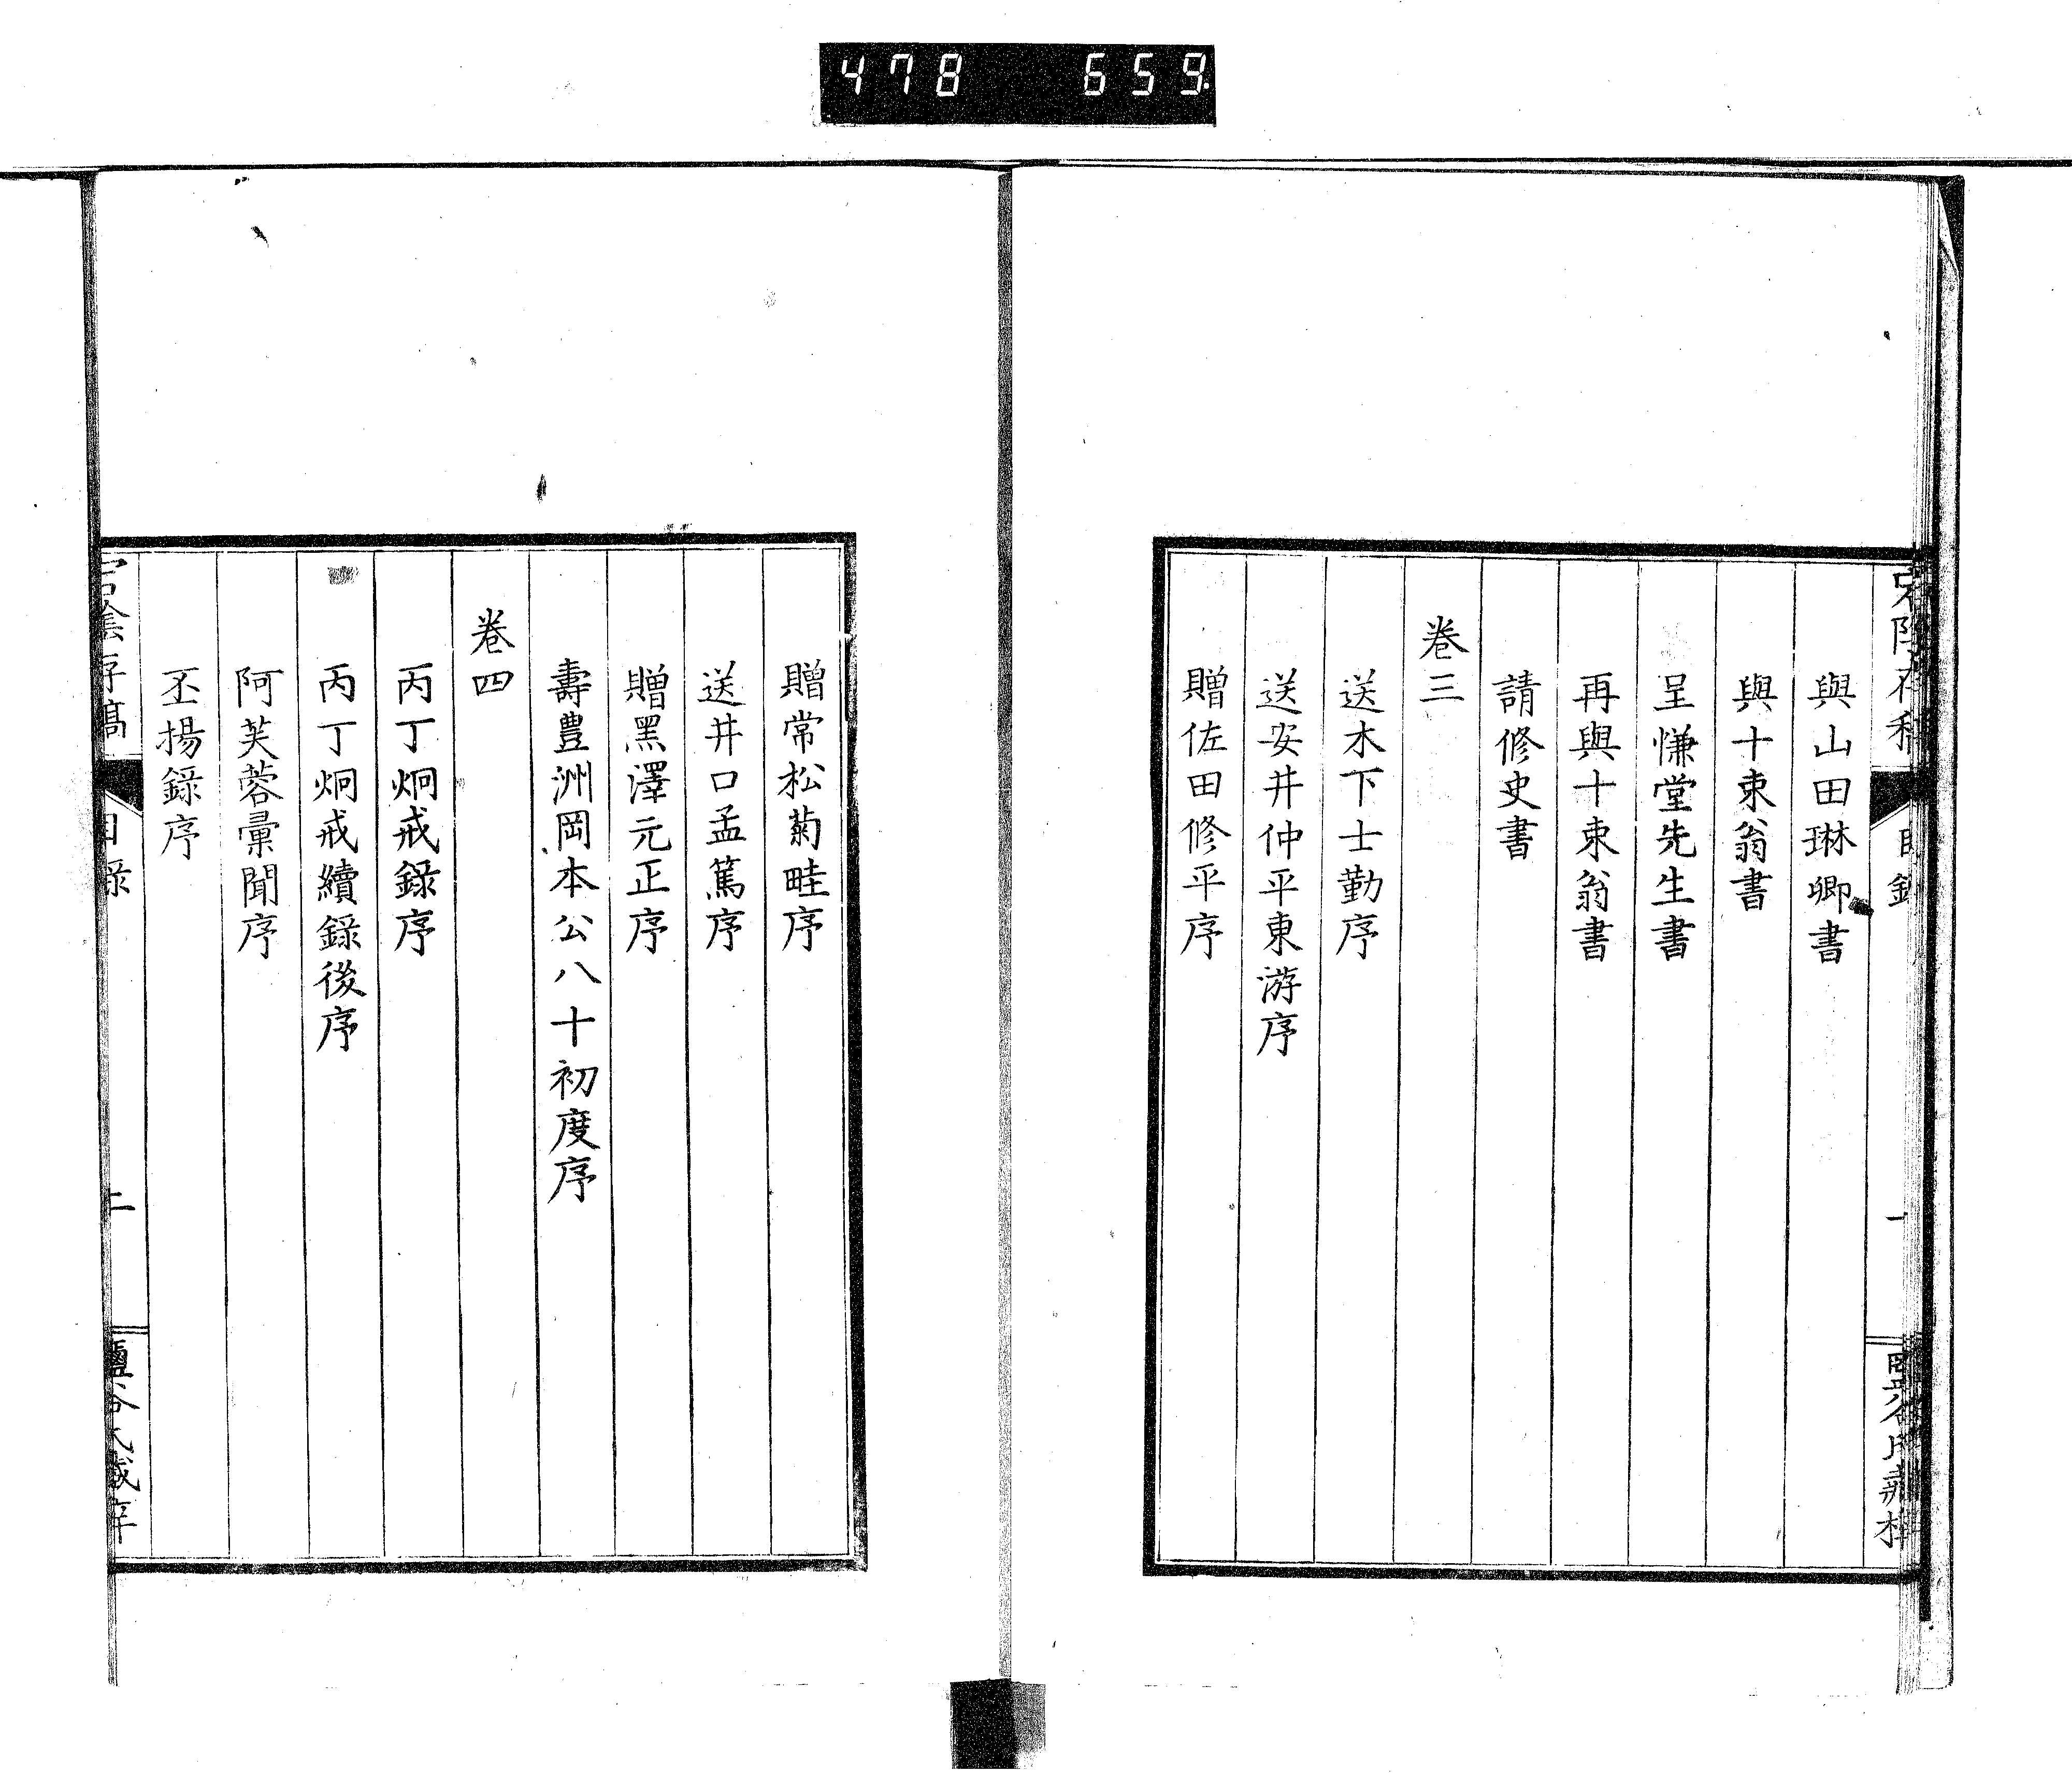 478 659
與山田琳卿書
與十束翁書
呈慊堂先生書
再與十束翁書
請修史書
卷三
送木下士勤序
送安井仲平東游序
贈佐田修平序
贈常松菊畦序
送井口孟篤序
贈黑澤元正序
壽豊洲岡本公八十初度序
卷四
丙丁炯戒錄序
丙丁炯戒續錄後序
阿芙蓉彙聞序
丕揚錄序